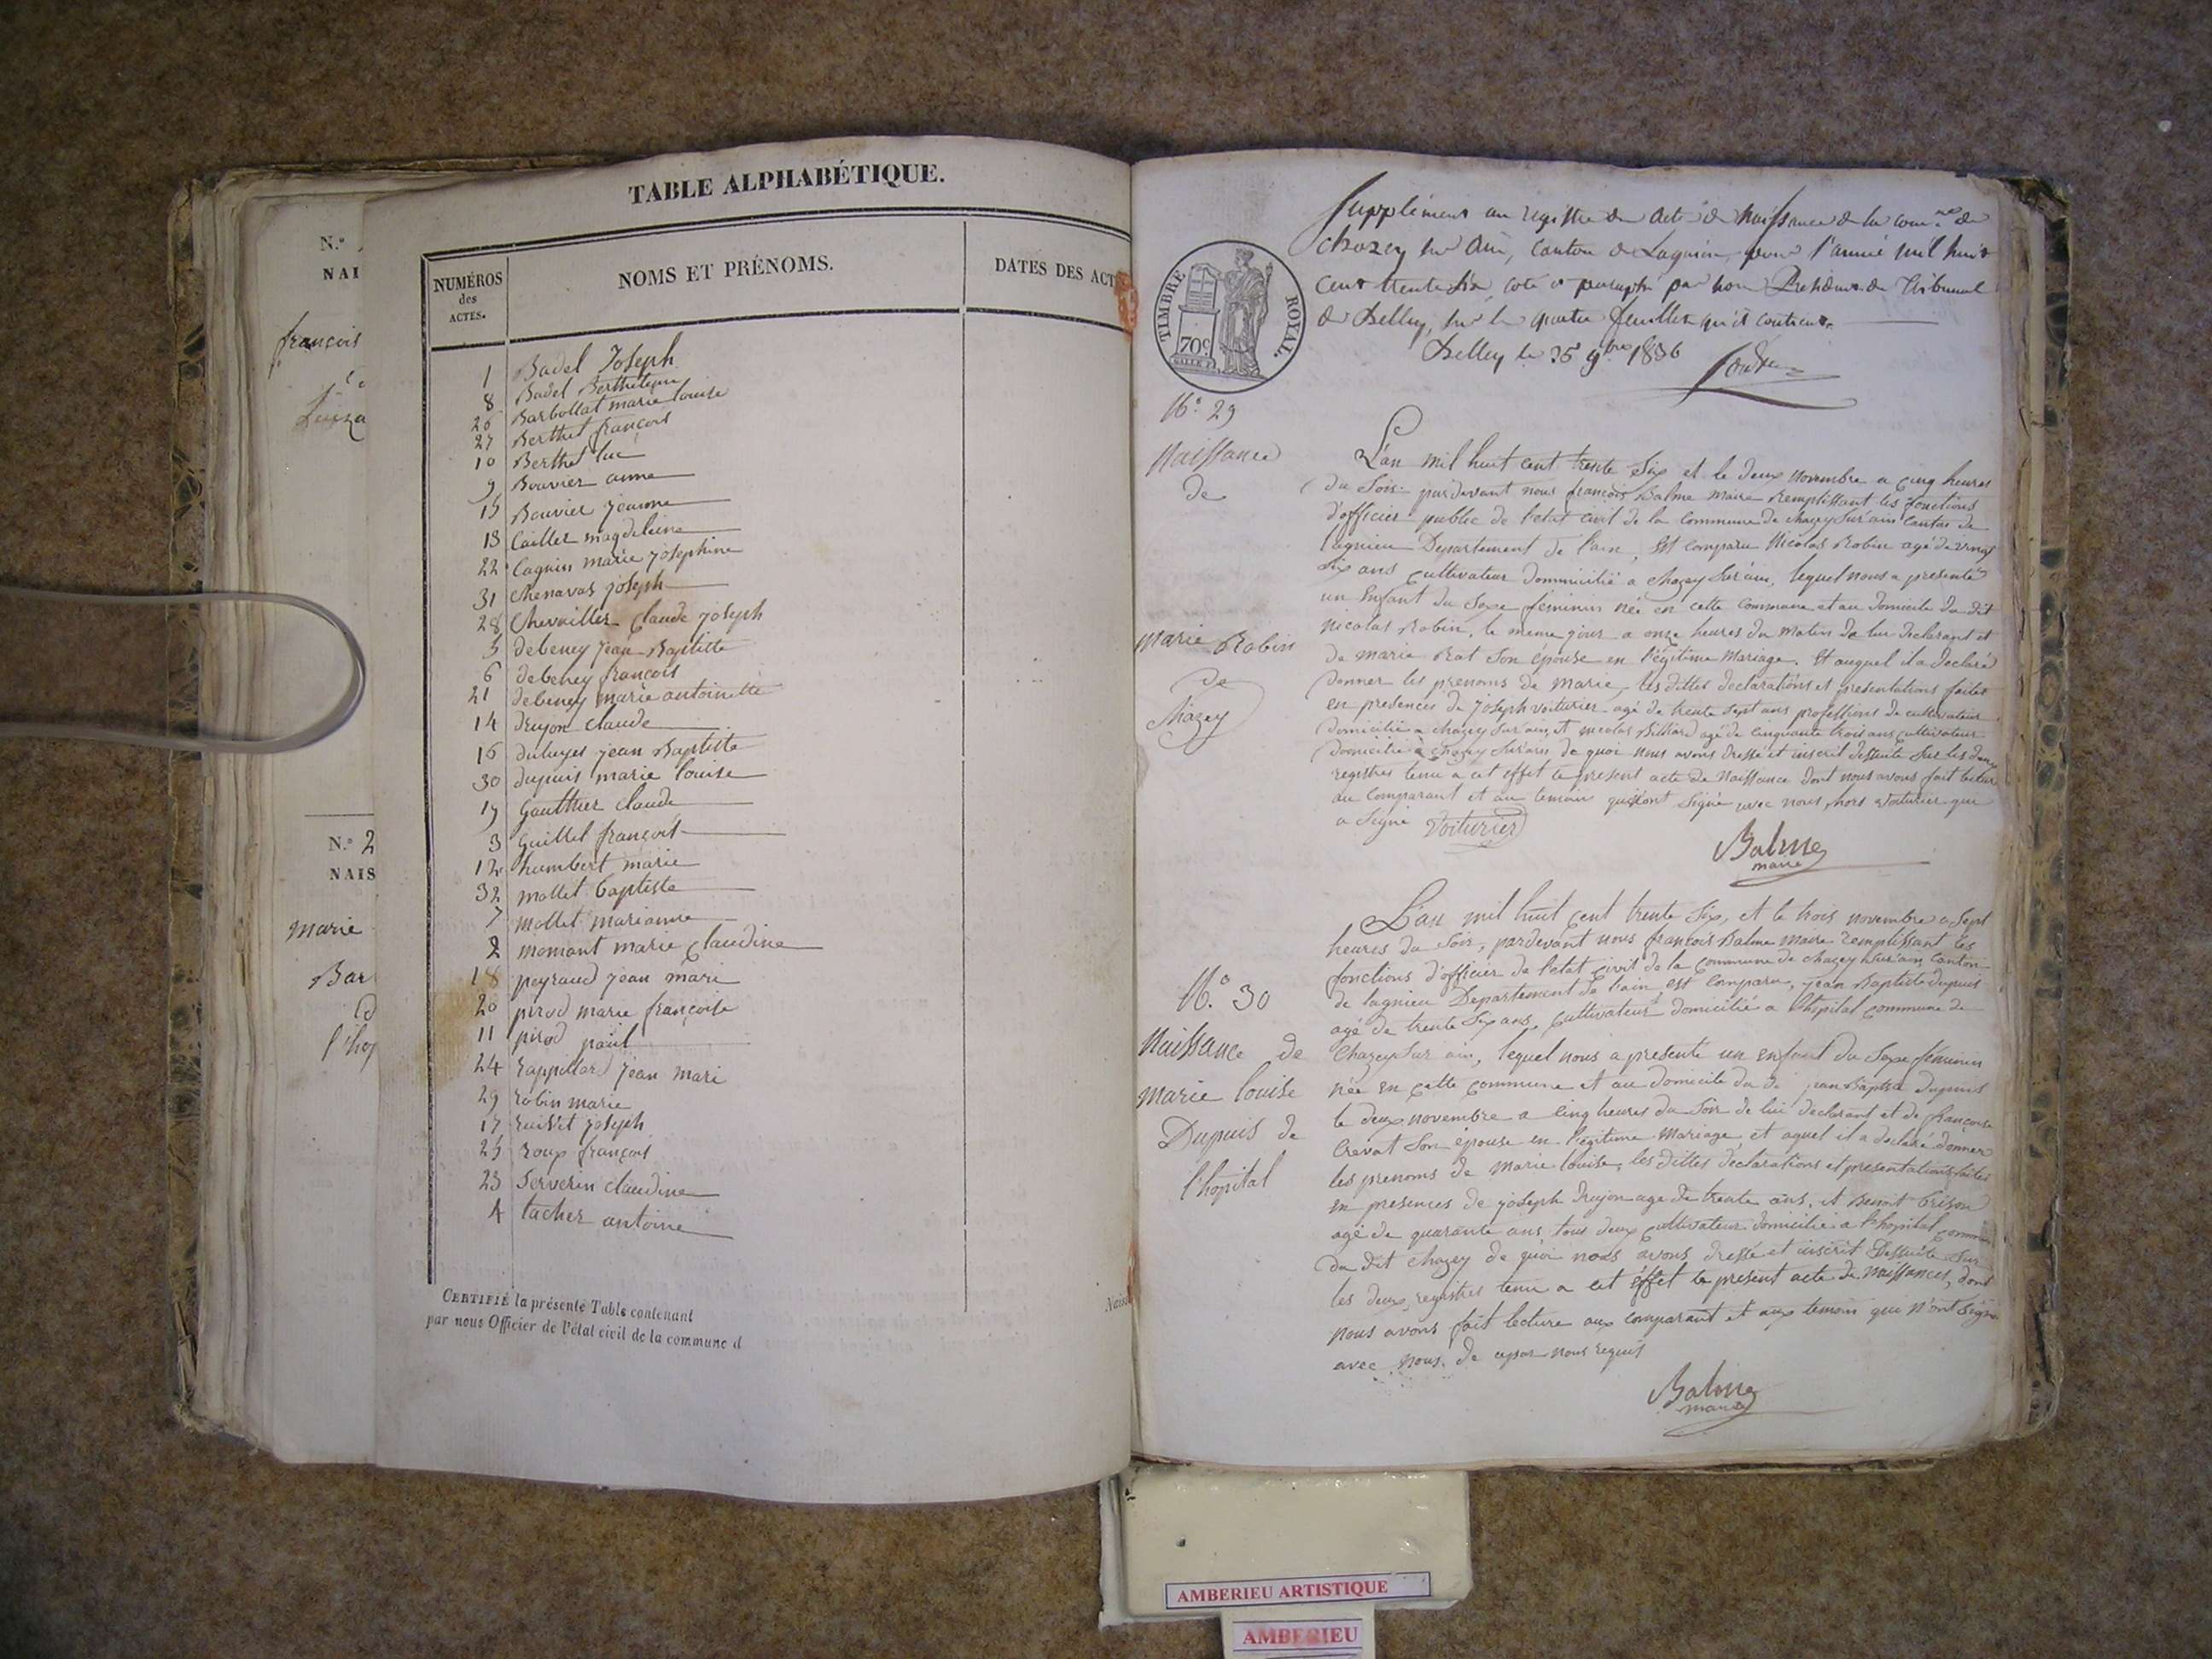 N.°
NAI
françois
N.° 2
NAIS
marie
Bar
l'hop
TABLE ALPHABÉTIQUE.
NUMÉROS des ACTES.
NOMS ET PRÉNOMS.
DATES DES ACT
1 Badel Joseph
8 Badel
26 Barbollat marie louise
27 Berthet françois
10 Berthet luc
9 Bouvier anne
15 Bouvier jeanne
13 Cailler magdeleine
22 Caguin marie josephine
31 Chenavas joseph
28 Chevaillier Claude joseph
5 debeney jean Baptiste
6 debeney françois
21 debeney marie antoinette
14 drujon claude
16 jean Baptiste
30 dupuis marie louise
19 Gautthier claude
3 Guillet françois
12 humbert marie
32 mollet baptiste
7 mollet marianne
2 momant marie claudine
18 peyraud jean marie
20 pirod marie françoise
11 pirod paul
24 rappillard jean mari
29 robin marie
17 joseph
25 roux françois
23 Serverin claudine
4 tacher antoine
CERTIFIÉ la présente Table contenant
par nous Officier de l'état civil de la commune d
Naiss
Supplément au registre de acte de Naissance de la com.ne de
chazey sur Ain, canton de Lagnieu, pour l'année mil huit
cent trente six, coté et paraphé par nous Président du Tribunal
de Belley, sur le quatre feuillets qu'il contient.
Belley le 25 9bre 1836
TIMBRE ROYAL.
70c
N.° 29
Naissance
de
marie Robin
de
Chazey
L'an mil huit cent trente Six et le deux novembre a cinq heures
du Soir pardevant nous françois Balme maire Remplissant les fonctions
d'officier public de l'etat civil de la commune de chazey Sur ain Canton de
lagnieu Departement de l'ain, Est comparu Nicolas Robin agé de vingt
Six ans cultivateur domicilié a chazey Sur ain, lequel nous a presenté
un Enfant du Sexe feminin née en cette commune et au domicile du dit
nicolas Robin, le meme jour a onze heures du matin de lui declarant et
de marie Rat Son épouse en légitime Mariage. Et auquel il a declaré
donner les prenoms de marie, les dittes declarations et presentations faites
en presences de joseph voiturier agé de trente Sept ans profession de cultivateur
domicilié a chazey Sur ain, et nicolas Billiard agé de cinquante trois ans cultivateur
domicilié a chazey Sur ain de quoi nous avons dressé et inscrit dessuite Sur les deux
registres tenu a cet effet le present acte de Naissance dont nous avons fait lecture
au comparant et au temoin qui n'ont Signé avec nous, hors voiturier qui
a Signé Voiturier
Balme
maire
N.° 30
Naissance de
marie louise
Dupuis de
l'hopital
L'an mil huit cent trente Six, et le trois novembre a Sept
heures du Soir, pardevant nous françois Balme Maire remplissant les
fonctions d'officier de l'etat civil de la commune de chazey Sur ain, Canton
de lagnieu Departement de l'ain est comparu, jean Baptiste dupuis
agé de trente Six ans, cultivateur domicilié a l'hopital commune de
Chazey Sur ain, lequel nous a presenté un enfant du Sexe feminin
née en cette commune et au domicile du dit jean Baptiste dupuis
le deux novembre a cinq heures du Soir de lui declarant et de françoise
Crevat Son épouse en légitime Mariage, et aquel il a declaré donner
les prenoms de Marie louise, les dittes declarations et presentations faites
en presences de joseph Drujon agé de trente ans, et Benoit brison
agé de quarante ans, tous deux cultivateur domicilié a l'hopital commune
du dit chazey de quoi nous avons dressé et inscrit Dessuite Sur
les deux registres tenu a cet éffet le present acte de naissances, dont
nous avons fait lecture aux comparant et aux temoin qui n'ont Signé
avec nous. de nous requis
Balme
maire
AMBERIEU ARTISTIQUE
AMBERIEU